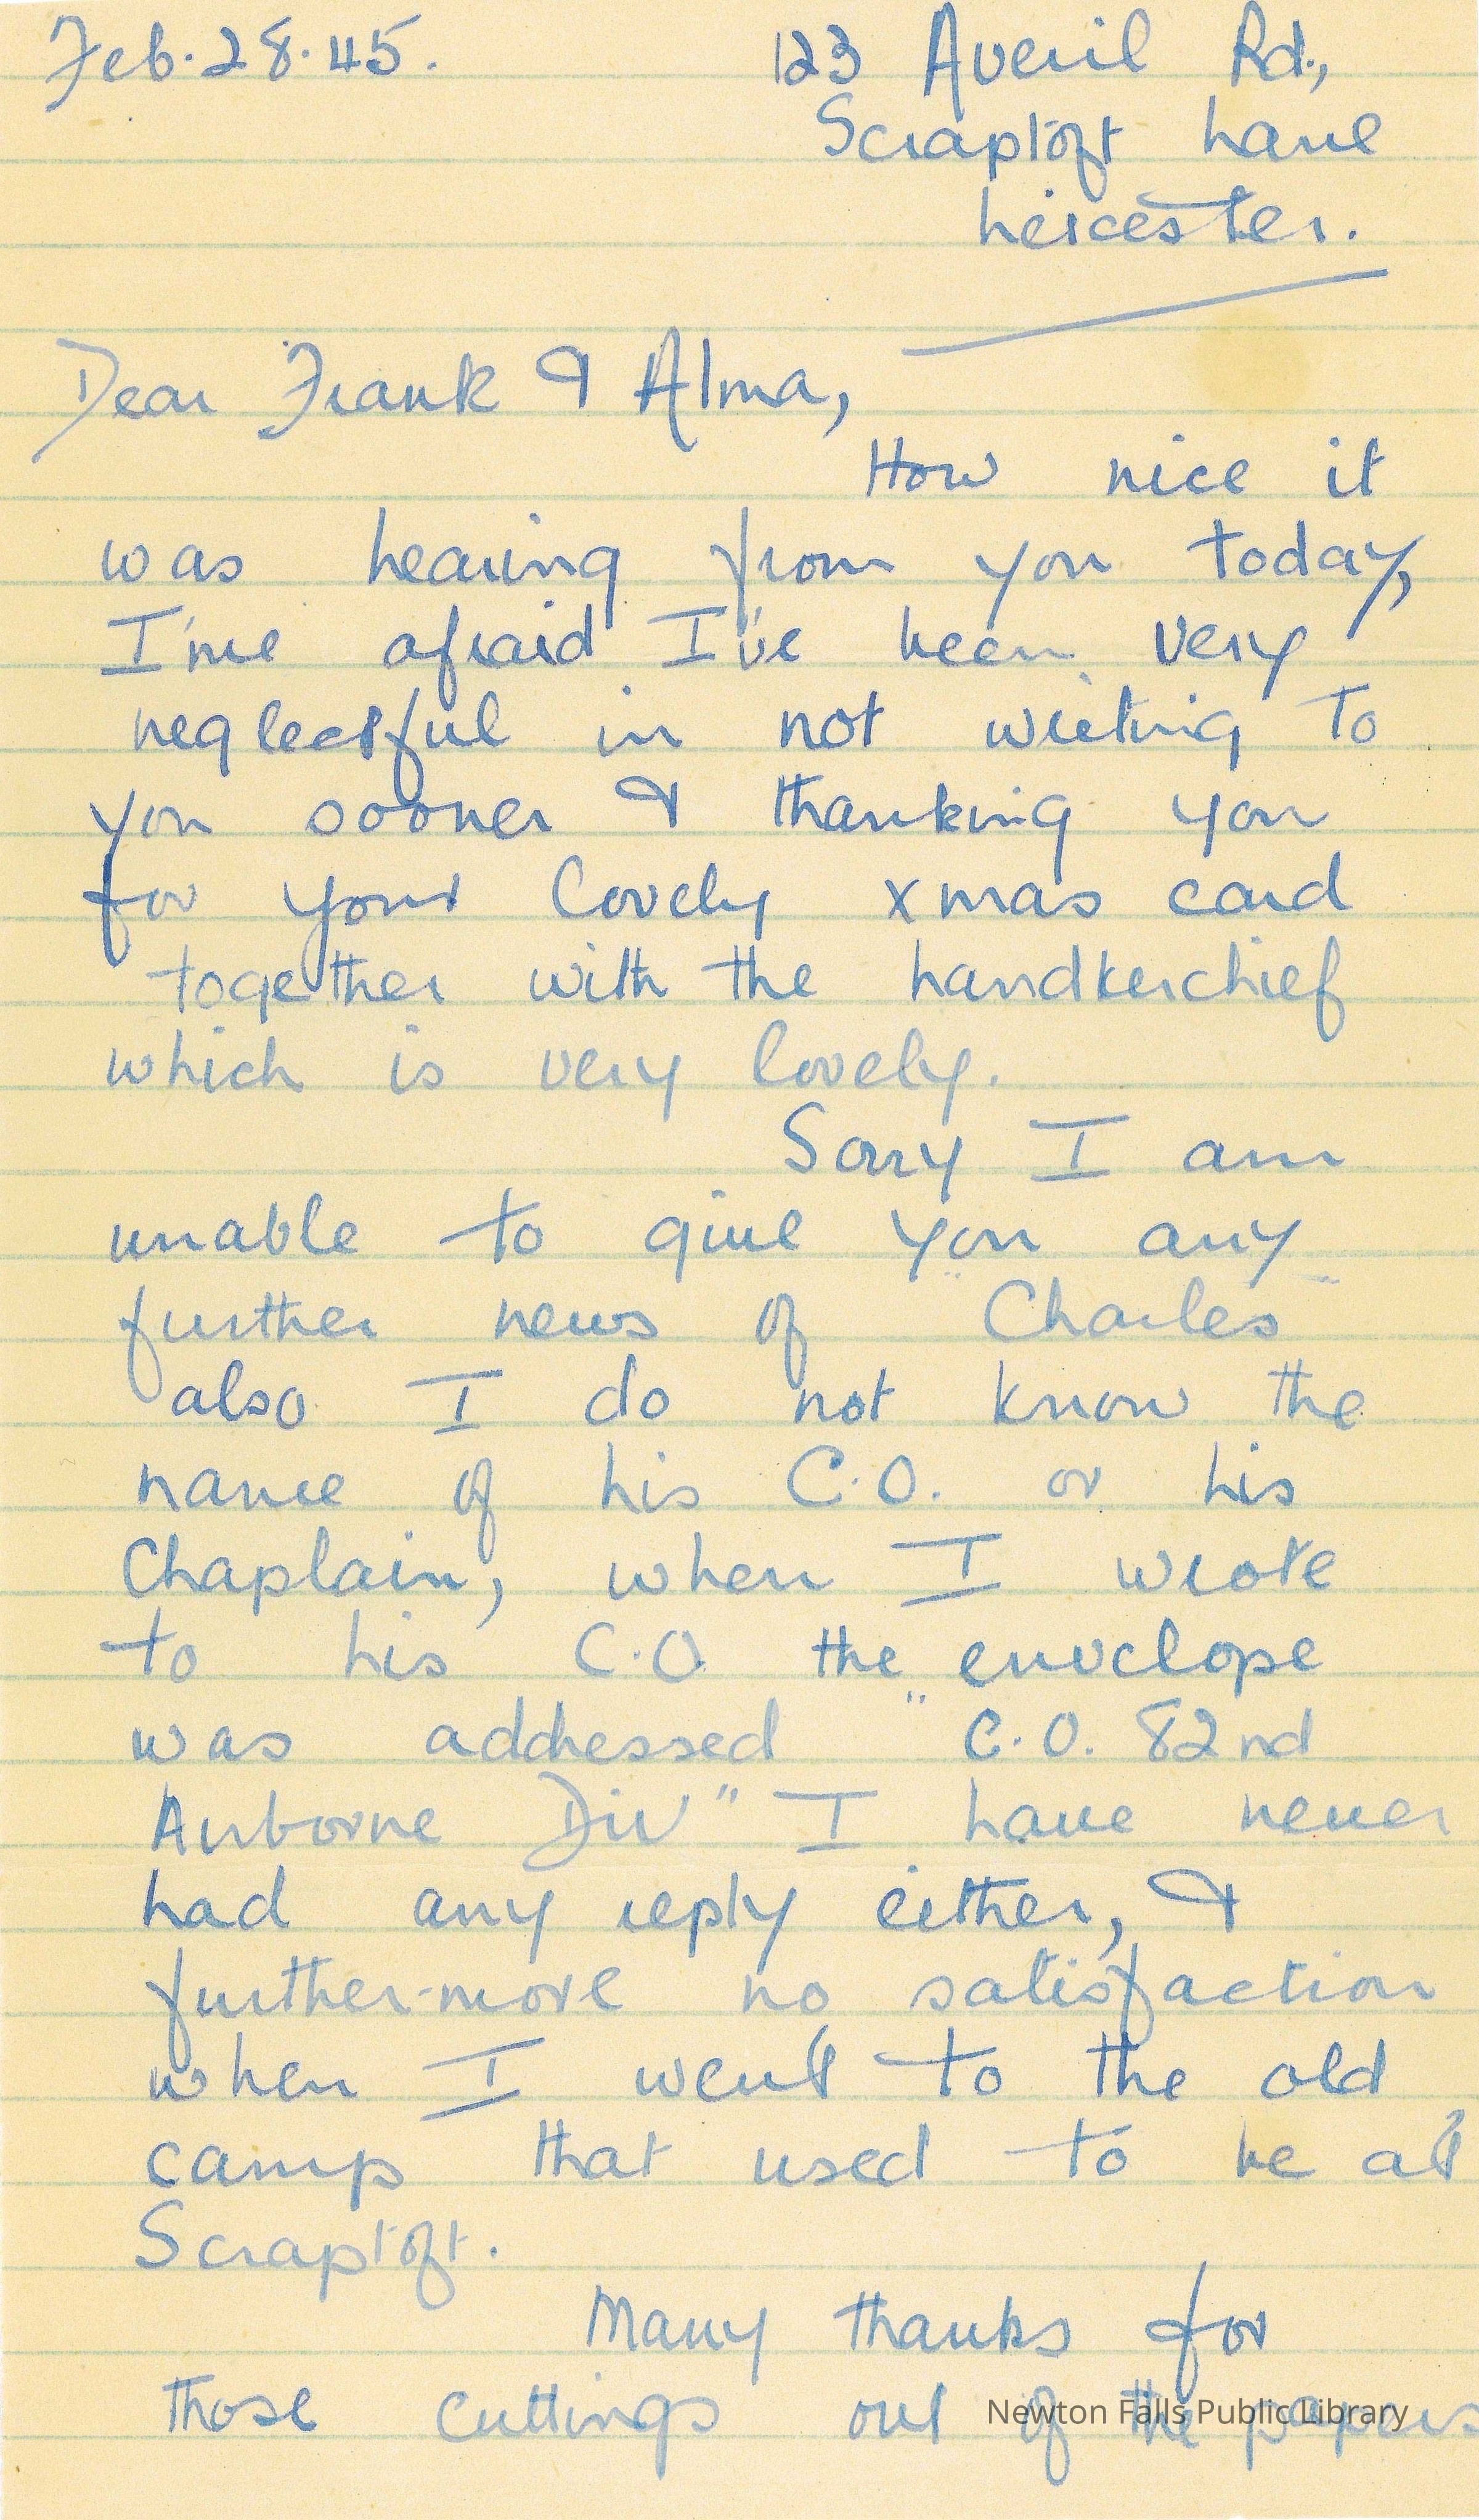 Feb. 28. 45.
123 Averil Rd.,
Scraptoft Lane
Leicester.
Dear Frank & Alma,
How nice it
was hearing from you today,
I'me afraid I've been very
neglectful in not writing to
you sooner & thanking you
for your lovely xmas card
together with the handkerchief
which is very lovely.
Sorry I am
unable to give you any
further news of "Charles"
also I do not know the
name of his C.O. or his
Chaplain, when I wrote
to his C.O. the envelope
was addressed "C.O. 82nd
Airborne Div" I have never
had any reply either, &
further-more no satisfaction
when I went to the old
camp that used to be at
Scraptoft.
Many thanks for
those cuttings out of the papers
Newton Falls Public Library